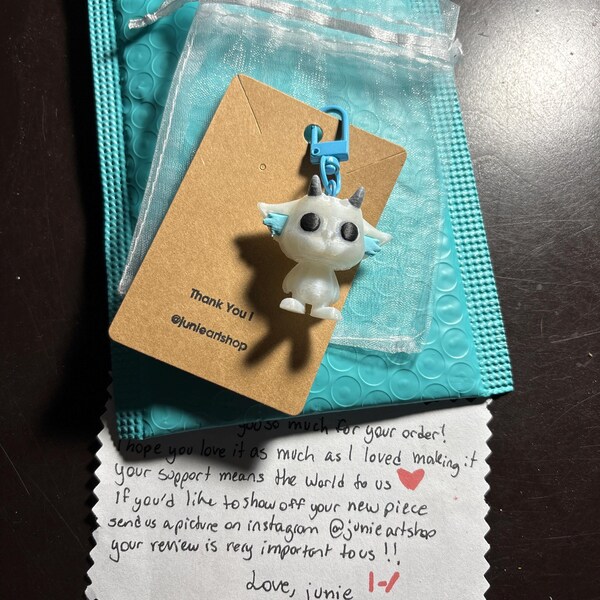 Thank You !
@junieartshop
you so much for your order!
I hope you love it as much as I loved making it
your support means the world to us ❤
If you'd like to show off your new piece
send us a picture on instagram @junieartshop
your review is very important to us !!
Love, junie